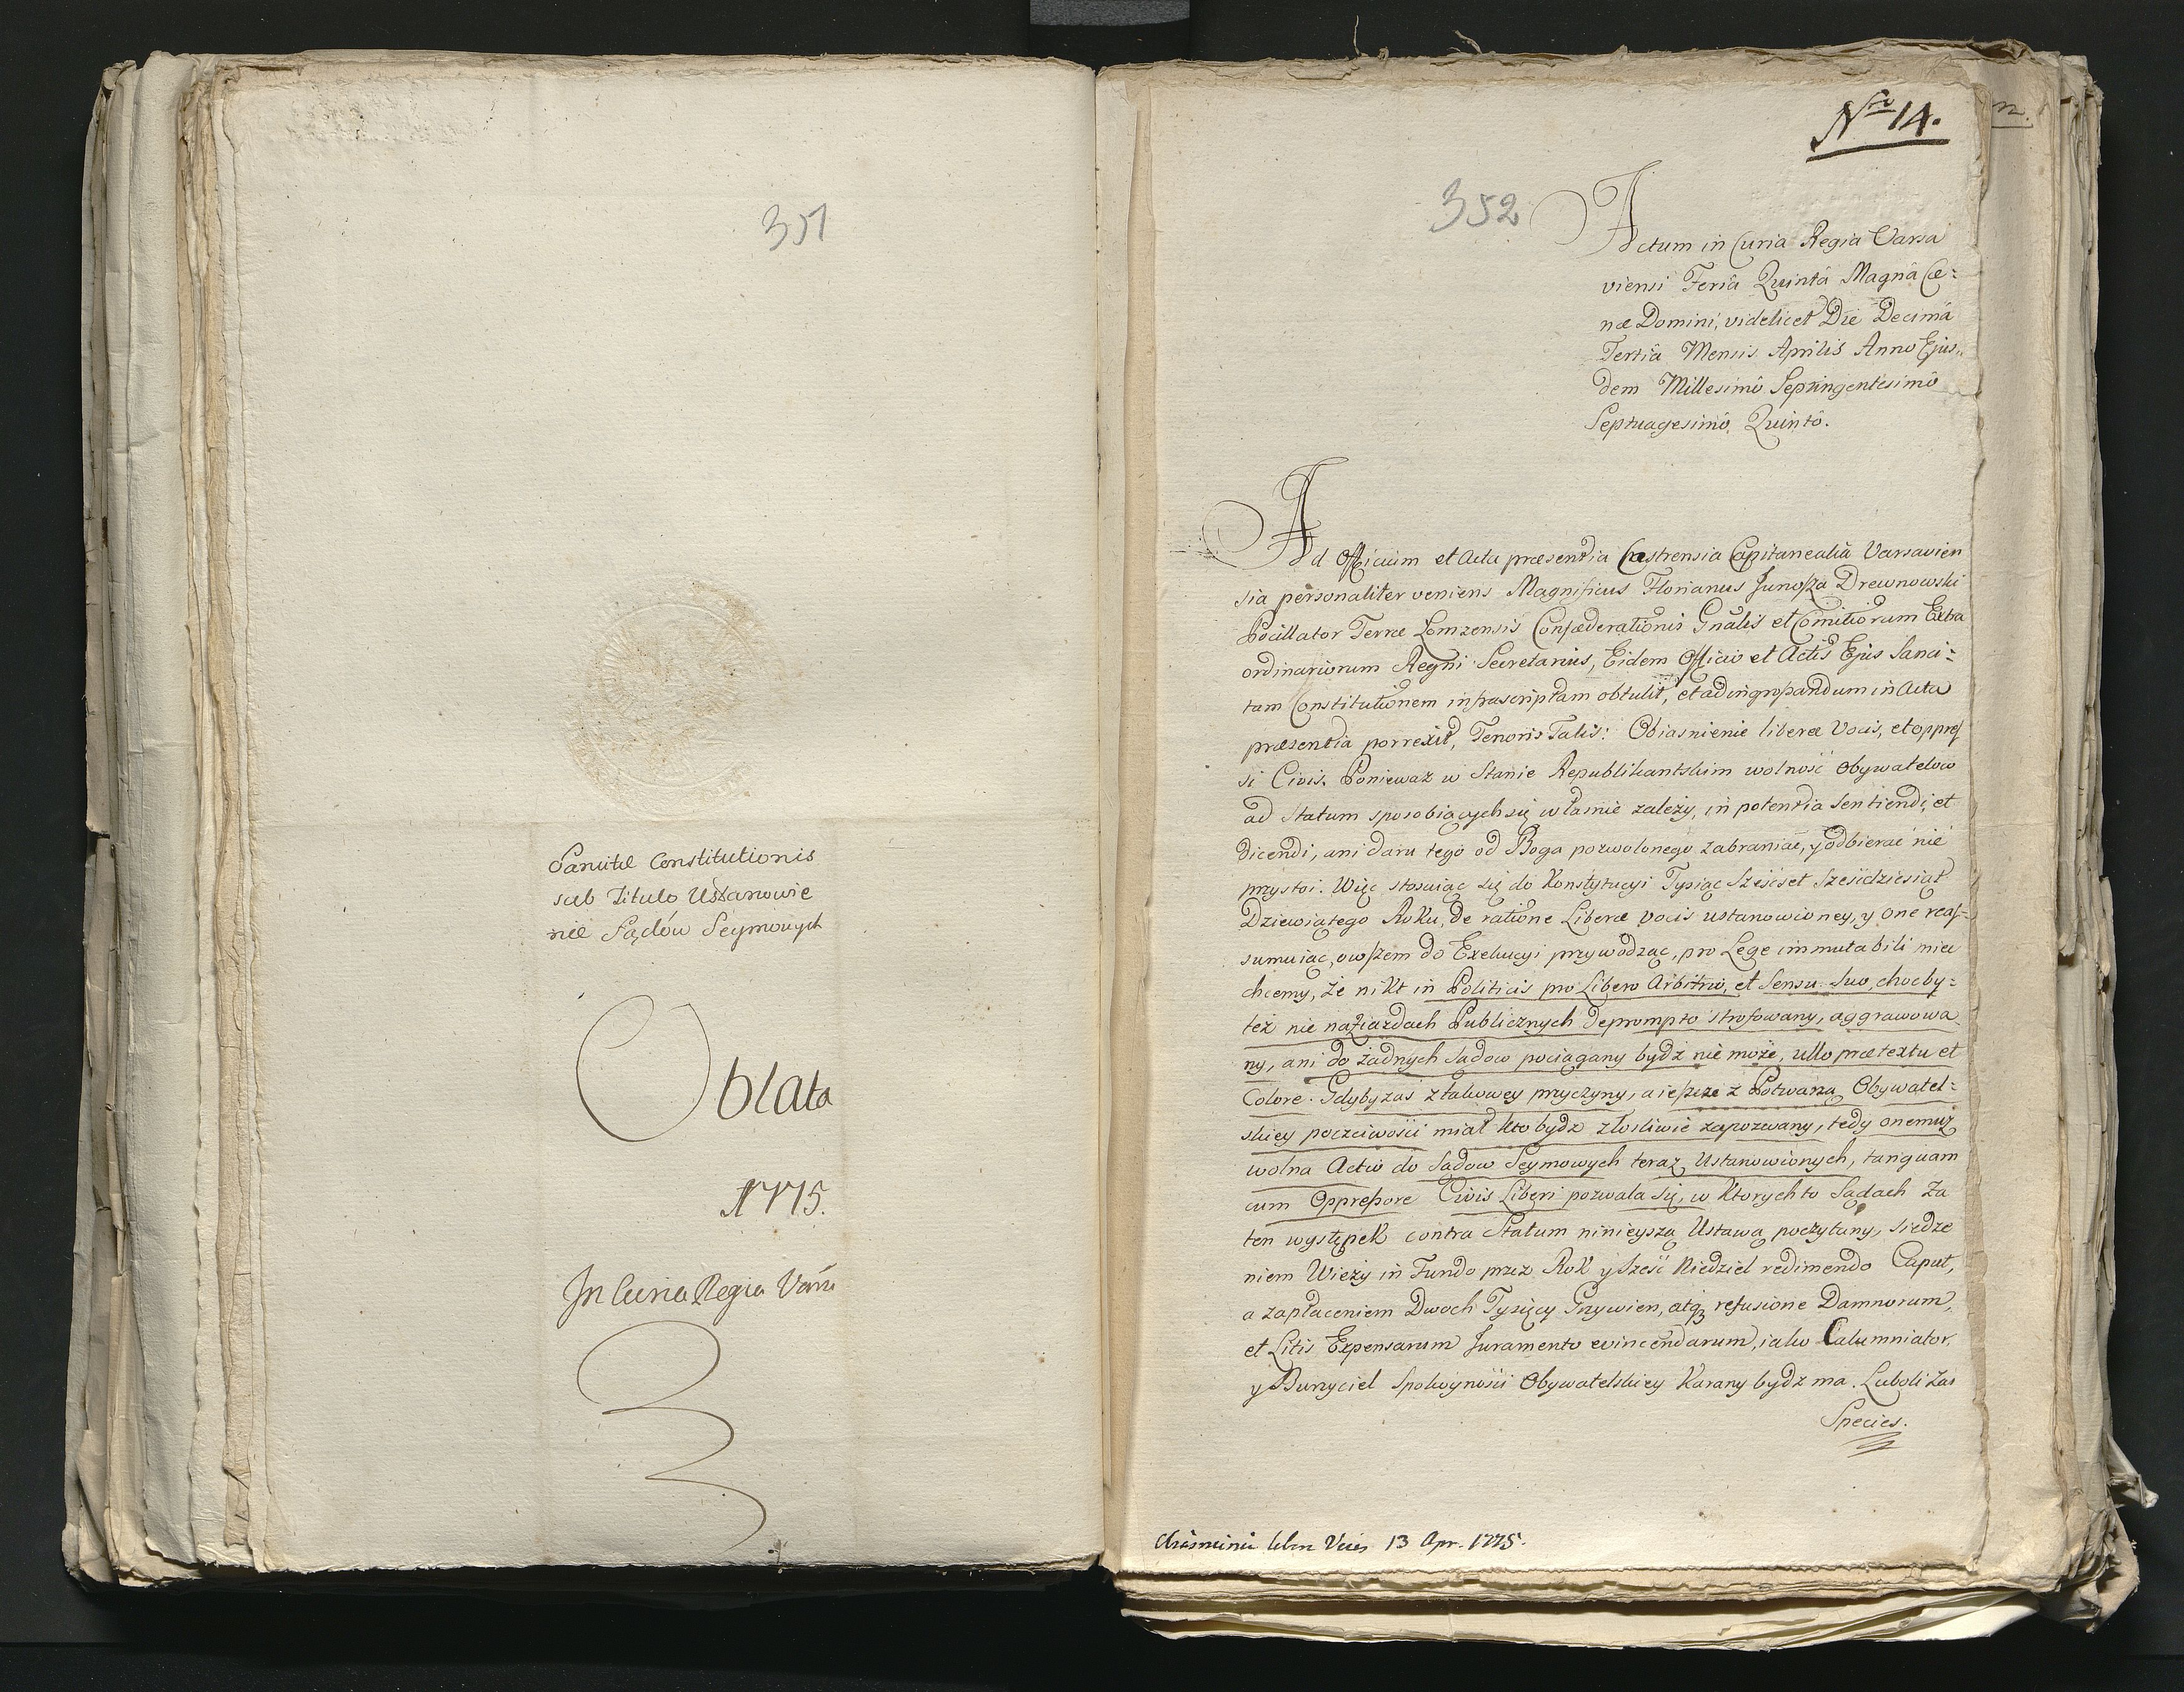 351
Sancitæ Constitutionis
sub Titulo Ustanowie
nie Sądów Seymowych
Oblata
1775.
In Curia Regia Varsa
Nro 14.
352
Actum in Curia Regia Varsa
viensi Feriâ Quintâ Magnâ Cæ=
næ Domini, videlicet Die Decimâ
Tertiâ Mensis Aprilis Anno Ejus„
dem Millesimô Septingentesimô
Septuagesimô Quintô.
Ad Officium et Acta præsentia Castrensia Capitanealia Varsavien
sia personaliter veniens Magnificus Florianus Junosza Drewnowski
Pocillator Terræ Lomzensis Confæderationis Gnâlis et Comitiorum Extra
ordinariorum Regni Secretarius, Eidem Officio et Actis Ejus Sanci=
tam Constitutionem infrascriptam obtulit, et ad ingrossandum in Acta
præsentia porrexit, Tenoris Talis: Obiasnienie liberæ Vocis, et oppres
si Civis. Poniewaz w Stanie Republikantskim wolność Obywatelow
ad Statum sposobiących się własnie zależy, in potentia Sentiendi, et
dicendi, ani daru tego od Boga pozwolonego zabraniać, y odbierać nie
przystoi. Więc stosuiąc się do Konstytucyi Tysiąc Sześćset Sześcdziesiąt
Dziewiątego Roku, de ratione Liberæ vocis ustanowioney, y one reas=
sumuiąc, owszem do Exekucyi przywodząc, pro Lege immutabili mieć
chcemy, że nikt in Politicis pro Libero Arbitrio, et Sensu suo, choćby=
też nie na Ziazdach Publicznych deprompto strofowany, aggrawowa
ny, ani do żadnych Sądow pociągany bydź nie może, ullo prætextu et
Colore. Gdyby zaś z takowey przyczyny, a ieszcze z Potwarzą Obywatel=
skiey poczciwości miał kto bydz złosliwie zapozwany, tedy onemuż
wolna Actio do Sądow Seymowych teraz Ustanowionych, tanquam
cum Oppressore Civis Liberi pozwala się, w Ktorych to Sądach Za
ten występek contra Statum ninieyszą Ustawą poczytany, siedze
niem Wieży in Fundo przez Rok y Sześć Niedziel redimendo Caput,
a zapłaceniem Dwoch Tysięcy Grzywien, atqz refusione Damnorum,
et Litis Expensarum Juramento evincendarum, iako Calumniator,
y Burzyciel Spokoyności Obywatelskiey Karany bydź ma. Luboli Zas
Species.
13 Apr. 1775.